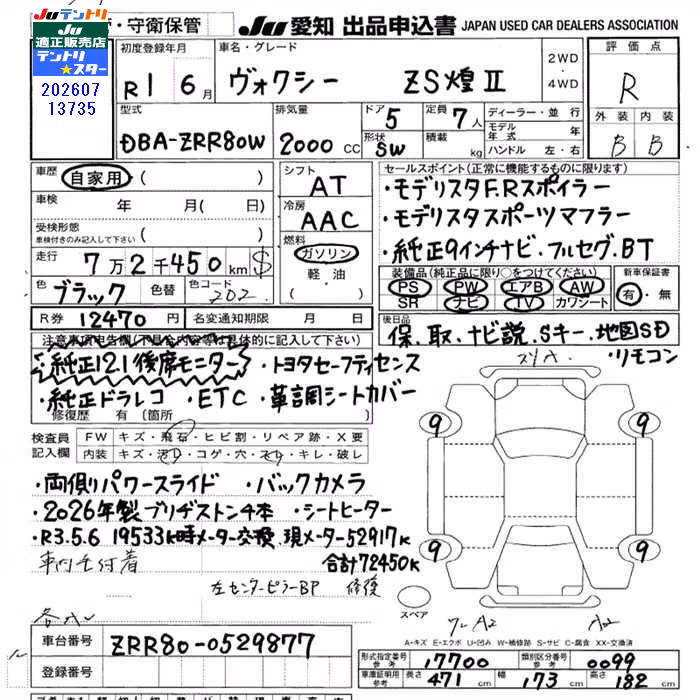 Juテントリ
適正販売店
テントリ
★スター
202607
13735
・守衛保管
Ju 愛知 出品申込書 JAPAN USED CAR DEALERS ASSOCIATION
初度登録年月
R1 6月
車名・グレード
ヴォクシー ZS煌Ⅱ
2WD
・
4WD
評価点
R
外装 内装
B B
型式
DBA-ZRR80W
排気量
2000 CC
ドア
5
形状
SW
定員
7人
積載
kg
ディーラー・並行
モデル年式 年
ハンドル 左・右
車歴
自家用 ( )
車検 年 月( 日)
受検形態
車検付きのみ記入して下さい ( )
走行 7万2千450km $
色 ブラック 色替 色コード 202
R券 12470円 名変通知期限 月 日
シフト
AT
冷房
AAC
燃料
ガソリン
軽・油
( )
セールスポイント(正常に機能するものに限ります)
・モデリスタF.Rスポイラー
・モデリスタスポーツマフラー
・純正9インチナビ・フルセグ.BT
装備品(純正品に限り○をつけてください)
PS PW エアB AW
SR ナビ TV カワシート
新車保証書
有・無
後日品
保.取.ナビ説.Sキー.地図SD
・リモコン
注意事項申告欄(不具合内容等は具体的に記入して下さい)
純正12.1後席モニター ・トヨタセーフティセンス
・純正ドラレコ ・ETC ・革調シートカバー
修復歴 有(箇所 )
検査員
記入欄
FW キズ・飛石・ヒビ割・リペア跡・X要
内装 キズ・汚レ・コゲ・穴・スレ・キレ・破レ
・両側パワースライド ・バックカメラ
・2026年製ブリヂストン4本 ・シートヒーター
・R3.5.6 19533k時メーター交換.現メーター52917k
合計72450k
左センターピラーBP 修復
9 9
9 9
スペア
A2
A2
A-キズ E-エクボ U-凹み W-補修跡 S-サビ C-腐食 XX-交換済
車台番号 ZRR80-0529877
登録番号
形式指定番号
参考
17700
類別区分番号
参考
0099
車庫証明用
参考
長さ 471cm 幅 173cm 高さ 182cm